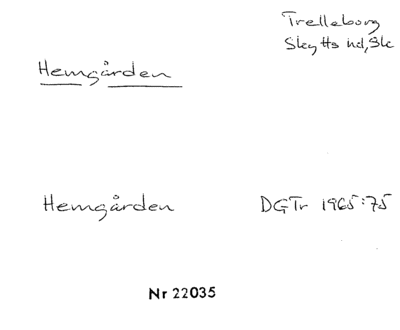 Trelleborg
Skytts hd, Sk
Hemgården
Hemgården DGTr 1965:75
Nr 22035